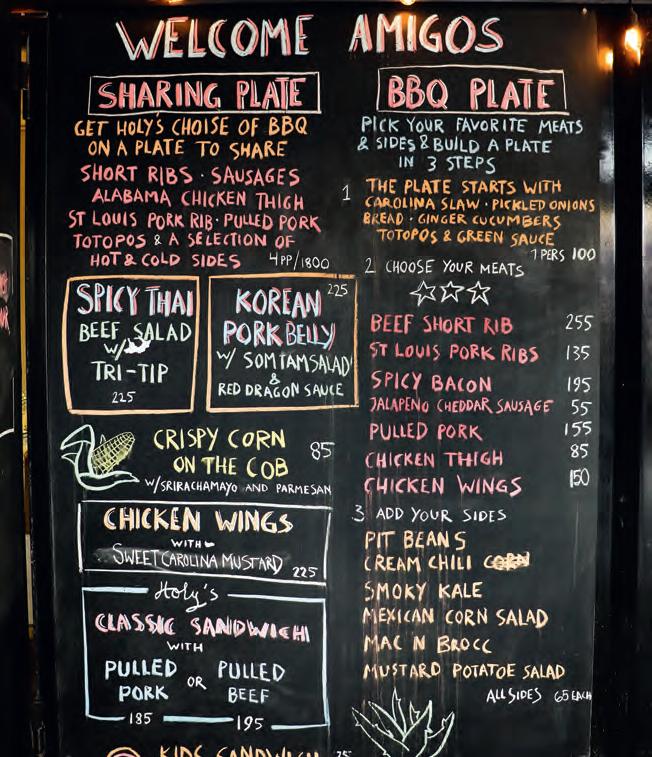 WELCOME AMIGOS
SHARING PLATE
GET HOLY'S CHOISE OF BBQ
ON A PLATE TO SHARE
SHORT RIBS · SAUSAGES
ALABAMA CHICKEN THIGH
ST LOUIS PORK RIB · PULLED PORK
TOTOPOS & A SELECTION OF
HOT & COLD SIDES 4PP/1800
SPICY THAI
BEEF SALAD
W/
TRI-TIP
225
KOREAN 225
PORK BELLY
W/ SOMTAM SALAD
&
RED DRAGON SAUCE
CRISPY CORN 85
ON THE COB
W/SRIRACHAMAYO AND PARMESAN
CHICKEN WINGS
WITH
SWEET CAROLINA MUSTARD 225
Holy's
CLASSIC SANDWICH
WITH
PULLED PORK OR PULLED BEEF
185 195
KIDS SANDWICH
BBQ PLATE
PICK YOUR FAVORITE MEATS
& SIDES & BUILD A PLATE
IN 3 STEPS
1 THE PLATE STARTS WITH
CAROLINA SLAW · PICKLED ONIONS
BREAD · GINGER CUCUMBERS
TOTOPOS & GREEN SAUCE
1 PERS 100
2 CHOOSE YOUR MEATS
BEEF SHORT RIB 255
ST LOUIS PORK RIBS 135
SPICY BACON 195
JALAPENO CHEDDAR SAUSAGE 55
PULLED PORK 155
CHICKEN THIGH 85
CHICKEN WINGS 150
3 ADD YOUR SIDES
PIT BEANS
CREAM CHILI CORN
SMOKY KALE
MEXICAN CORN SALAD
MAC N BROCC
MUSTARD POTATOE SALAD
ALL SIDES 65 EACH